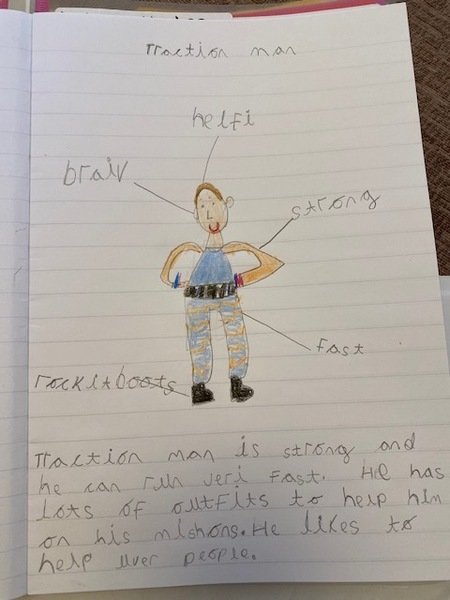 Traction man
helfi
braiv
strong
fast
rockitboots
Traction man is strong and
he can run veri fast. He has
lots of outfits to help him
on his mishons. He likes to
help uver people.